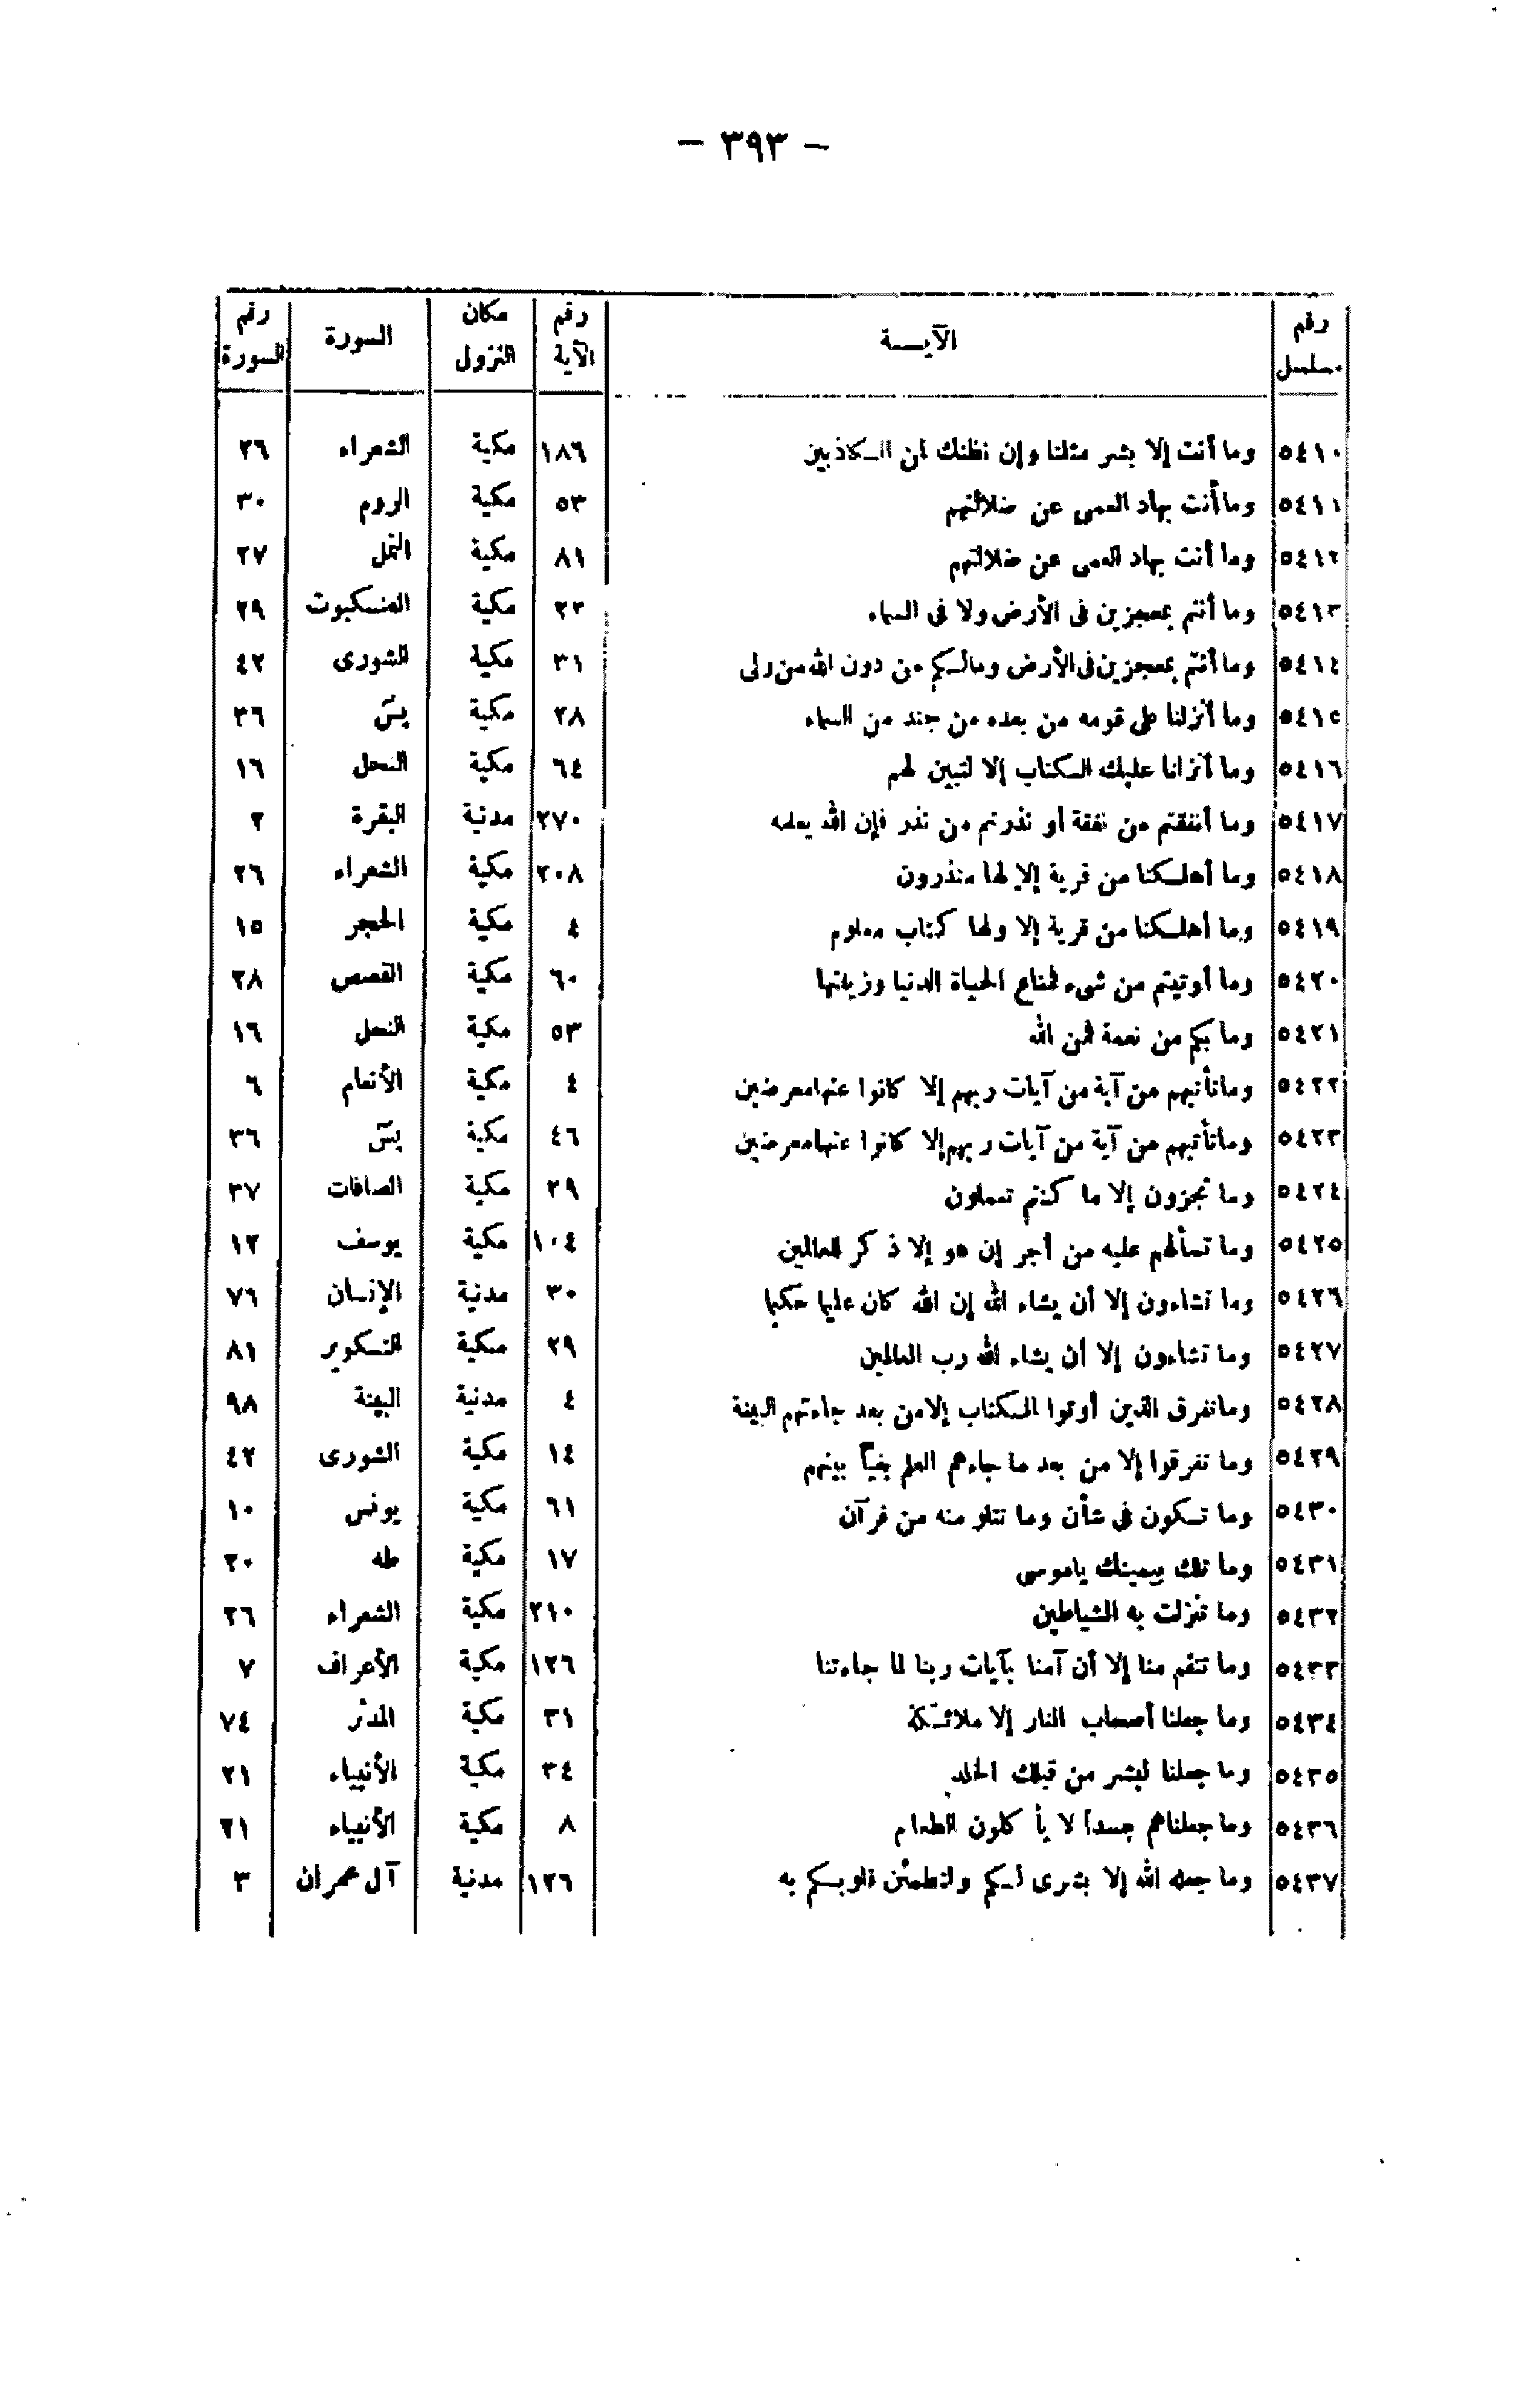 — ٣٩٣ —
رقم مسلسل الآيـــة رقم الآية مكان النزول السورة رقم السورة
٥٤١٠ وما أنت إلا بشر مثلنا وإن نظنك لمن الكاذبين ١٨٦ مكية الشعراء ٢٦
٥٤١١ وما أنت بهاد العمى عن ضلالتهم ٥٣ مكية الروم ٣٠
٥٤١٢ وما أنت بهاد العمى عن ضلالتهم ٨١ مكية النمل ٢٧
٥٤١٣ وما أنتم بمعجزين فى الأرض ولا فى السماء ٢٢ مكية العنكبوت ٢٩
٥٤١٤ وما أنتم بمعجزين فى الأرض ومالكم من دون الله من ولى ٣١ مكية الشورى ٤٢
٥٤١٥ وما أنزلنا على قومه من بعده من جند من السماء ٢٨ مكية يسَ ٣٦
٥٤١٦ وما أنزلنا عليك الكتاب إلا لتبين لهم ٦٤ مكية النحل ١٦
٥٤١٧ وما أنفقتم من نفقة أو نذرتم من نذر فإن الله يعلمه ٢٧٠ مدنية البقرة ٢
٥٤١٨ وما أهلكنا من قرية إلا لها منذرون ٢٠٨ مكية الشعراء ٢٦
٥٤١٩ وما أهلكنا من قرية إلا ولها كتاب معلوم ٤ مكية الحجر ١٥
٥٤٢٠ وما أوتيتم من شىء فمتاع الحياة الدنيا وزينتها ٦٠ مكية القصص ٢٨
٥٤٢١ وما بكم من نعمة فمن الله ٥٣ مكية النحل ١٦
٥٤٢٢ وما تأتيهم من آية من آيات ربهم إلا كانوا عنها معرضين ٤ مكية الأنعام ٦
٥٤٢٣ وما تأتيهم من آية من آيات ربهم إلا كانوا عنها معرضين ٤٦ مكية يسَ ٣٦
٥٤٢٤ وما تجزون إلا ما كنتم تعملون ٣٩ مكية الصافات ٣٧
٥٤٢٥ وما تسألهم عليه من أجر إن هو إلا ذكر للعالمين ١٠٤ مكية يوسف ١٢
٥٤٢٦ وما تشاءون إلا أن يشاء الله إن الله كان عليما حكيما ٣٠ مدنية الإنسان ٧٦
٥٤٢٧ وما تشاءون إلا أن يشاء الله رب العالمين ٢٩ مكية التكوير ٨١
٥٤٢٨ وما تفرق الذين أوتوا الكتاب إلا من بعد جاءتهم البينة ٤ مدنية البينة ٩٨
٥٤٢٩ وما تفرقوا إلا من بعد ما جاءهم العلم بغياً بينهم ١٤ مكية الشورى ٤٢
٥٤٣٠ وما تكون فى شأن وما تتلو منه من قرآن ٦١ مكية يونس ١٠
٥٤٣١ وما تلك بيمينك ياموسى ١٧ مكية طه ٢٠
٥٤٣٢ وما تنزلت به الشياطين ٢١٠ مكية الشعراء ٢٦
٥٤٣٣ وما تنقم منا إلا أن آمنا بآيات ربنا لما جاءتنا ١٢٦ مكية الأعراف ٧
٥٤٣٤ وما جعلنا أصحاب النار إلا ملائكة ٣١ مكية المدثر ٧٤
٥٤٣٥ وما جعلنا لبشر من قبلك الخلد ٣٤ مكية الأنبياء ٢١
٥٤٣٦ وما جعلناهم جسداً لا يأكلون الطعام ٨ مكية الأنبياء ٢١
٥٤٣٧ وما جعله الله إلا بشرى لكم ولتطمئن قلوبكم به ١٢٦ مدنية آل عمران ٣